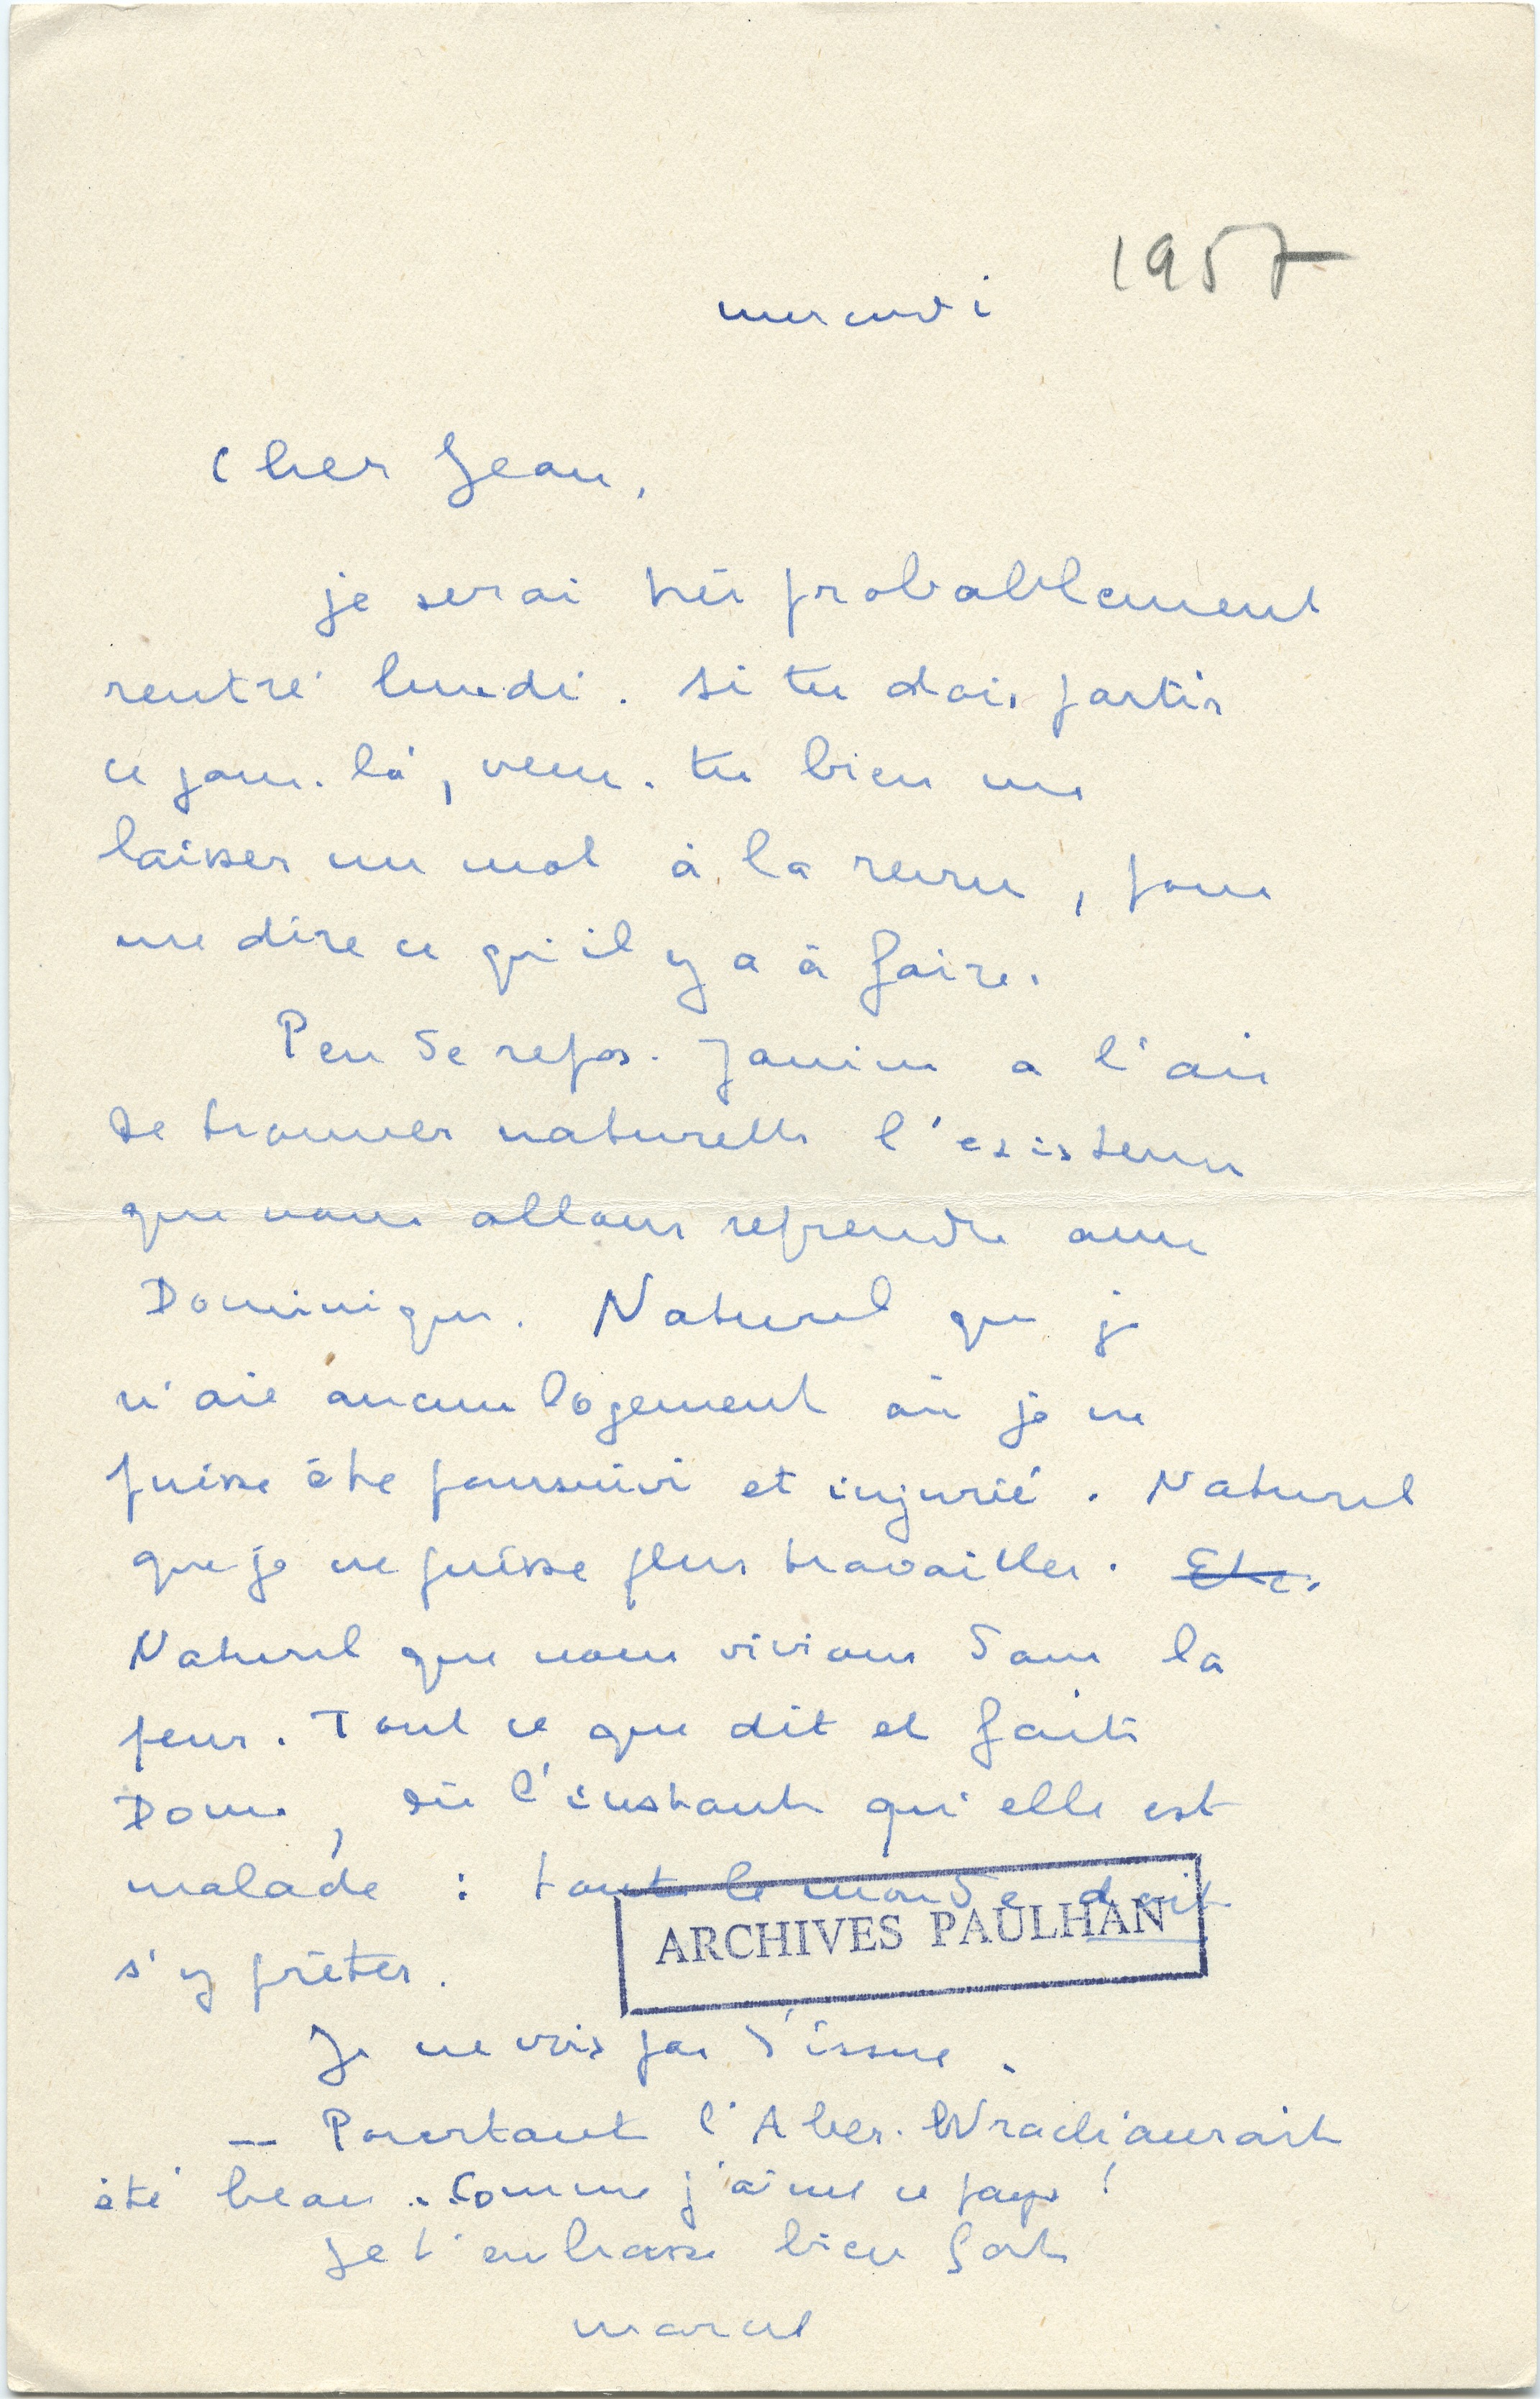 1957
mercredi
Cher Jean,
je serai très probablement
rentré lundi. Si tu dois partir
ce jour-là, veux-tu bien me
laisser un mot à la revue, pour
me dire ce qu'il y a à faire.
Peu de repos. Janine a l'air
de trouver naturelle l'existence
que nous allons reprendre avec
Dominique. Naturel que je
n'aie aucun logement où je ne
puisse être poursuivi et injurié. Naturel
que je ne puisse plus travailler. Etc.
Naturel que nous vivions dans la
peur. Tout ce que dit et fait
Domi, dès l'instant qu'elle est
malade : tout le monde doit
s'y prêter.
ARCHIVES PAULHAN
Je ne vois pas d'issue.
— Pourtant l'Aber-Wrach aurait
été beau. Comme j'aime ce pays !
Je t'embrasse bien fort
marcel